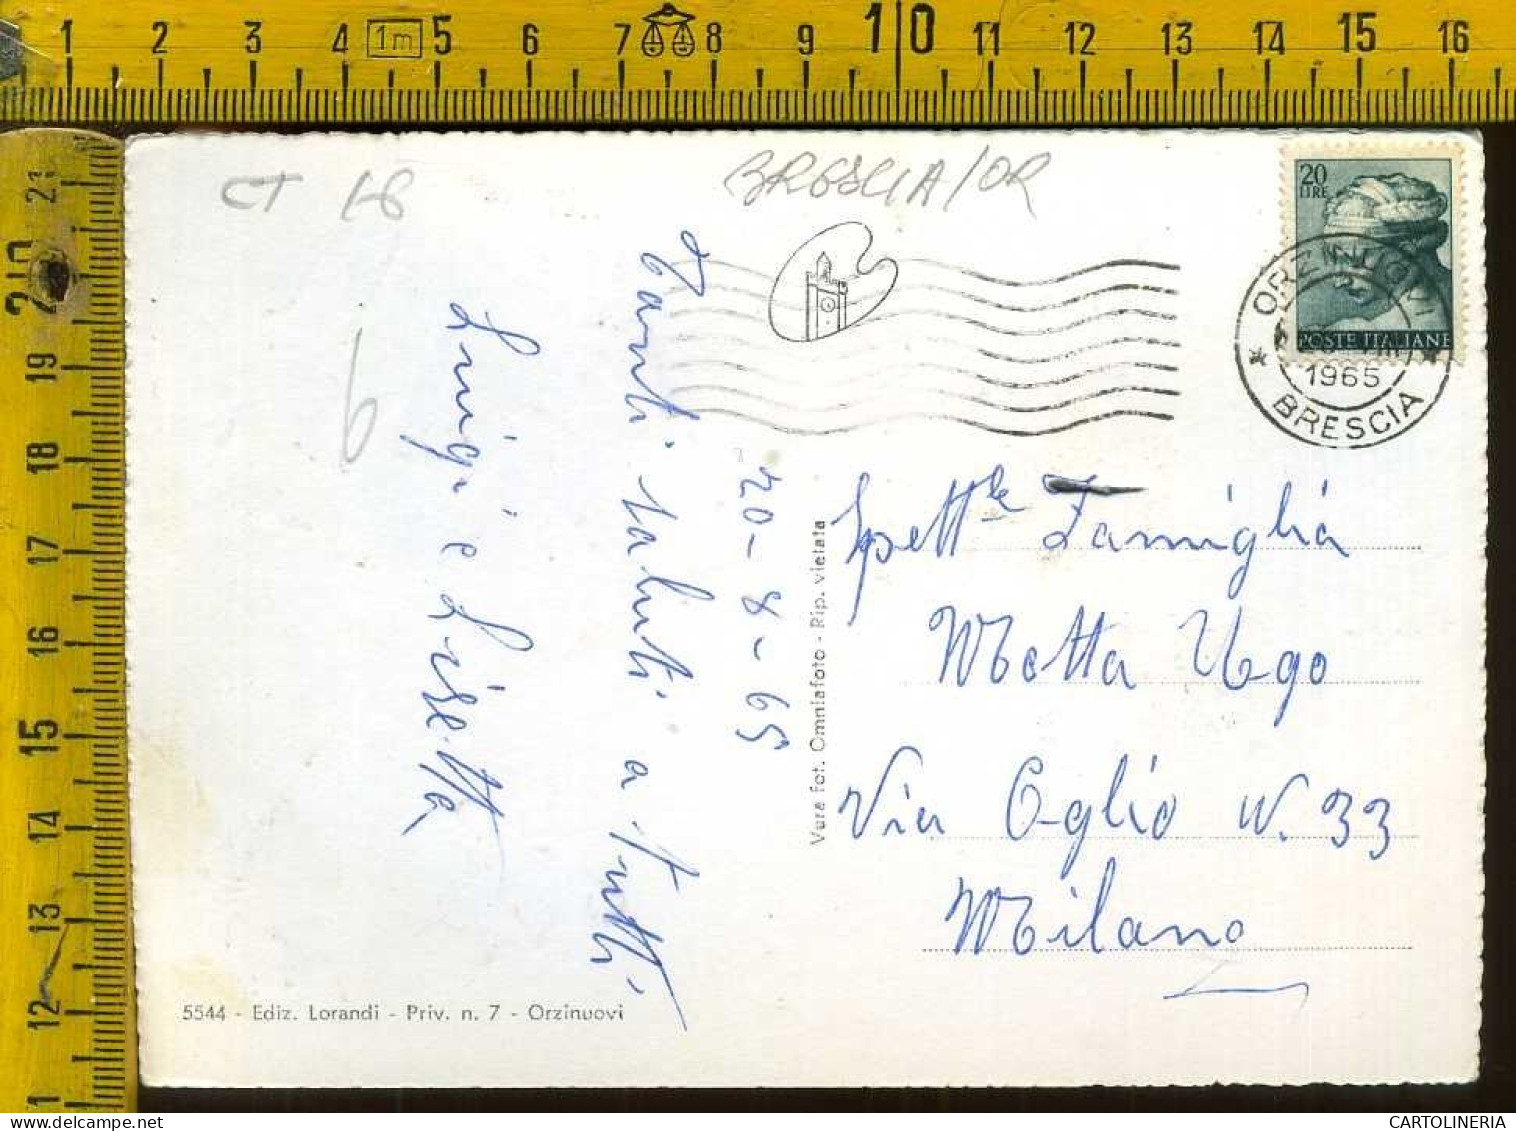 1 2 3 4 1m 5 6 7 8 9 10 11 12 13 14 15 16
21
20
19
18
17
16
15
14
13
12
CT 18
BRESCIA/OR
20
LIRE
POSTE ITALIANE
ORZINUOVI
1965
* BRESCIA *
20-8-65
Tanti saluti a tutti
Luigi e Lisetta
Vera fot. Omniafoto - Rip. vietata
Spett.le Famiglia
Motta Ugo
Via Oglio N. 33
Milano
5544 - Ediz. Lorandi - Priv. n. 7 - Orzinuovi
CARTOLINERIA